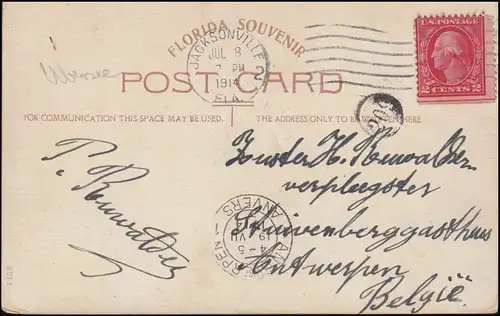 FLORIDA SOUVENIR
JACKSONVILLE
JUL 8
PM
1914
FLA.
2
U.S. POSTAGE
2 CENTS 2
POST CARD
FOR COMMUNICATION THIS SPACE MAY BE USED.
THE ADDRESS ONLY TO BE WRITTEN HERE
Zuster H. Ruwalder
verpleegster
Stuivenberggasthuis
Antwerpen
België
P. Ruwalder
ANTWERPEN
4-5
19 VII
ANVERS